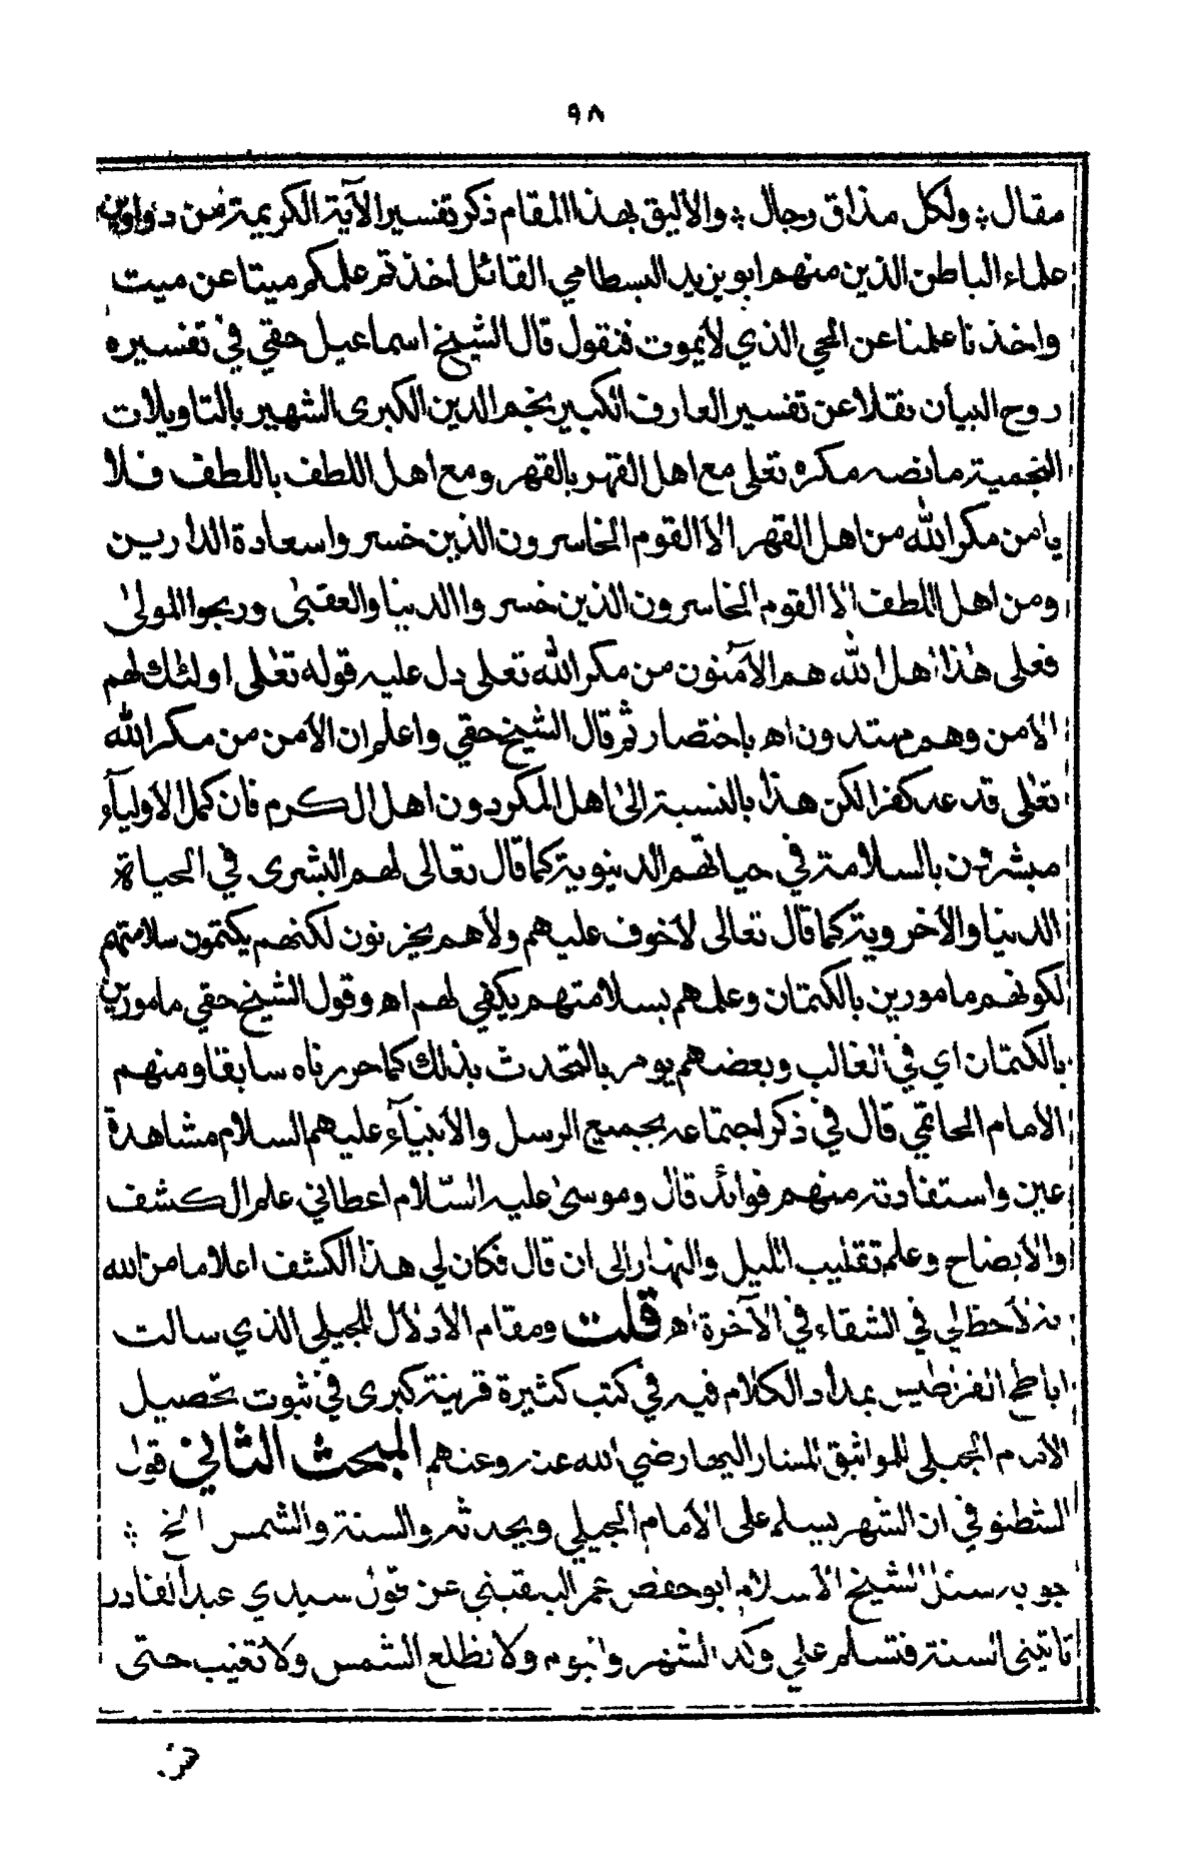 ٩٨
مقال ۞ ولكل مذاق رجال ۞ والأليق بهذا المقام ذكر تفسير الآية الكريمة من دواوين
علماء الباطن الذين منهم ابو يزيد البسطامي القائل اخذتم علمكم ميتا عن ميت
واخذنا علمنا عن الحي الذي لايموت فنقول قال الشيخ اسماعيل حقي في تفسيره
روح البيان نقلا عن تفسير العارف الكبير نجم الدين الكبرى الشهير بالتاويلات
النجمية ما نصه مكره تعلى مع اهل القهر بالقهر ومع اهل اللطف باللطف فلا
يامن مكر الله من اهل القهر الا القوم الخاسرون الذين خسروا سعادة الدارين
ومن اهل اللطف الا القوم الخاسرون الذين خسروا الدنيا والعقبى وربحوا المولى
فعلى هذا اهل الله هم الآمنون من مكر الله تعلى دل عليه قوله تعلى اولئك لهم
الأمن وهم مهتدون اه باختصار ثم قال الشيخ حقي واعلم ان الأمن من مكر الله
تعلى قد عد كفرا لكن هذا بالنسبة الى اهل المكر دون اهل الكرم فان كمل الأوليآء
مبشرون بالسلامة في حياتهم الدنيوية كما قال تعالى لهم البشرى في الحياة
الدنيا والأخروية كما قال تعالى لأخوف عليهم ولاهم يحزنون لكنهم يكتمون سلامتهم
لكونهم مامورين بالكتمان وعلمهم بسلامتهم يكفي لهم اه وقول الشيخ حقي مامورين
بالكتمان اي في الغالب وبعضهم يومر بالتحدث بذلك كما حررناه سابقا ومنهم
الأمام الحاتمي قال في ذكر اجتماعه بجميع الرسل والأنبيآء عليهم السلام مشاهدة
عين واستفادته منهم فوائد قال وموسى عليه السلام اعطاني علم الكشف
والأيضاح وعلم تقليب الليل والنهار الى ان قال فكان لي هذا الكشف اعلاما من الله
بانه لاحظ لي في الشقاء في الآخرة اه قلت ومقام الأدلال للجيلي الذي سالت
اباطح القراطيس بمداد الكلام فيه في كتب كثيرة قرينة كبرى في ثبوت تحصيل
الأمام الجيلي للمواثيق المشار اليها رضي الله عنه وعنهم المبحث الثاني قول
الشطنوفي ان الشهر يسلم على الأمام الجيلي ويحدثه والسنة والشمس الخ ۞
جوابه سئل الشيخ الأسلام ابو حفص عمر البلقيني عن قول سيدي عبد القادر
تاتيني السنة فتسلم علي وكذا الشهر واليوم ولا تطلع الشمس ولا تغيب حتى